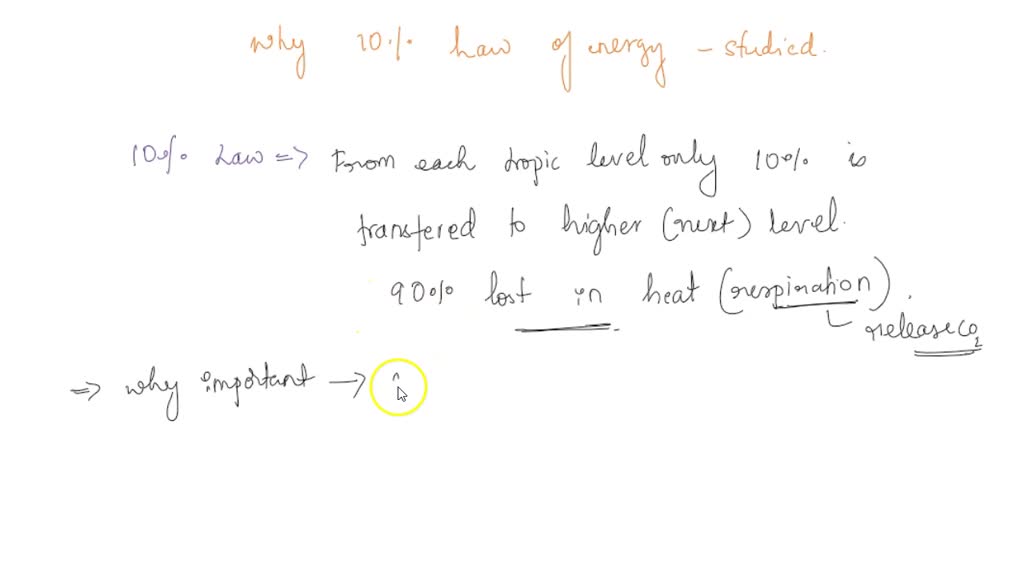 why 10% Law of energy - studied.
10% Law => From each tropic level only 10% is
transfered to higher (next) level.
90% lost in heat (respiration).
release CO2
=> why important →